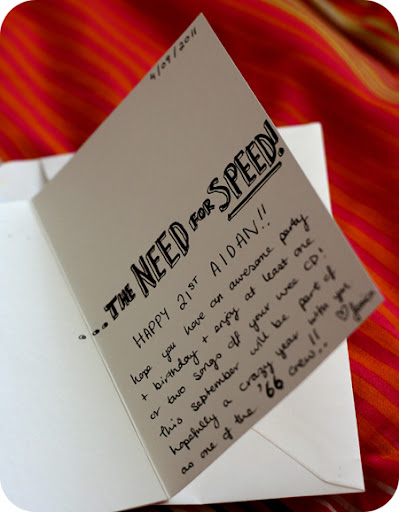 4/09/2011
...THE NEED FOR SPEED!
HAPPY 21ST AIDAN!!
hope you have an awesome party
+ birthday + enjoy at least one
or two songs off your wee CD!
This september will be part of
hopefully a crazy year with you
as one of the '66 crew!!